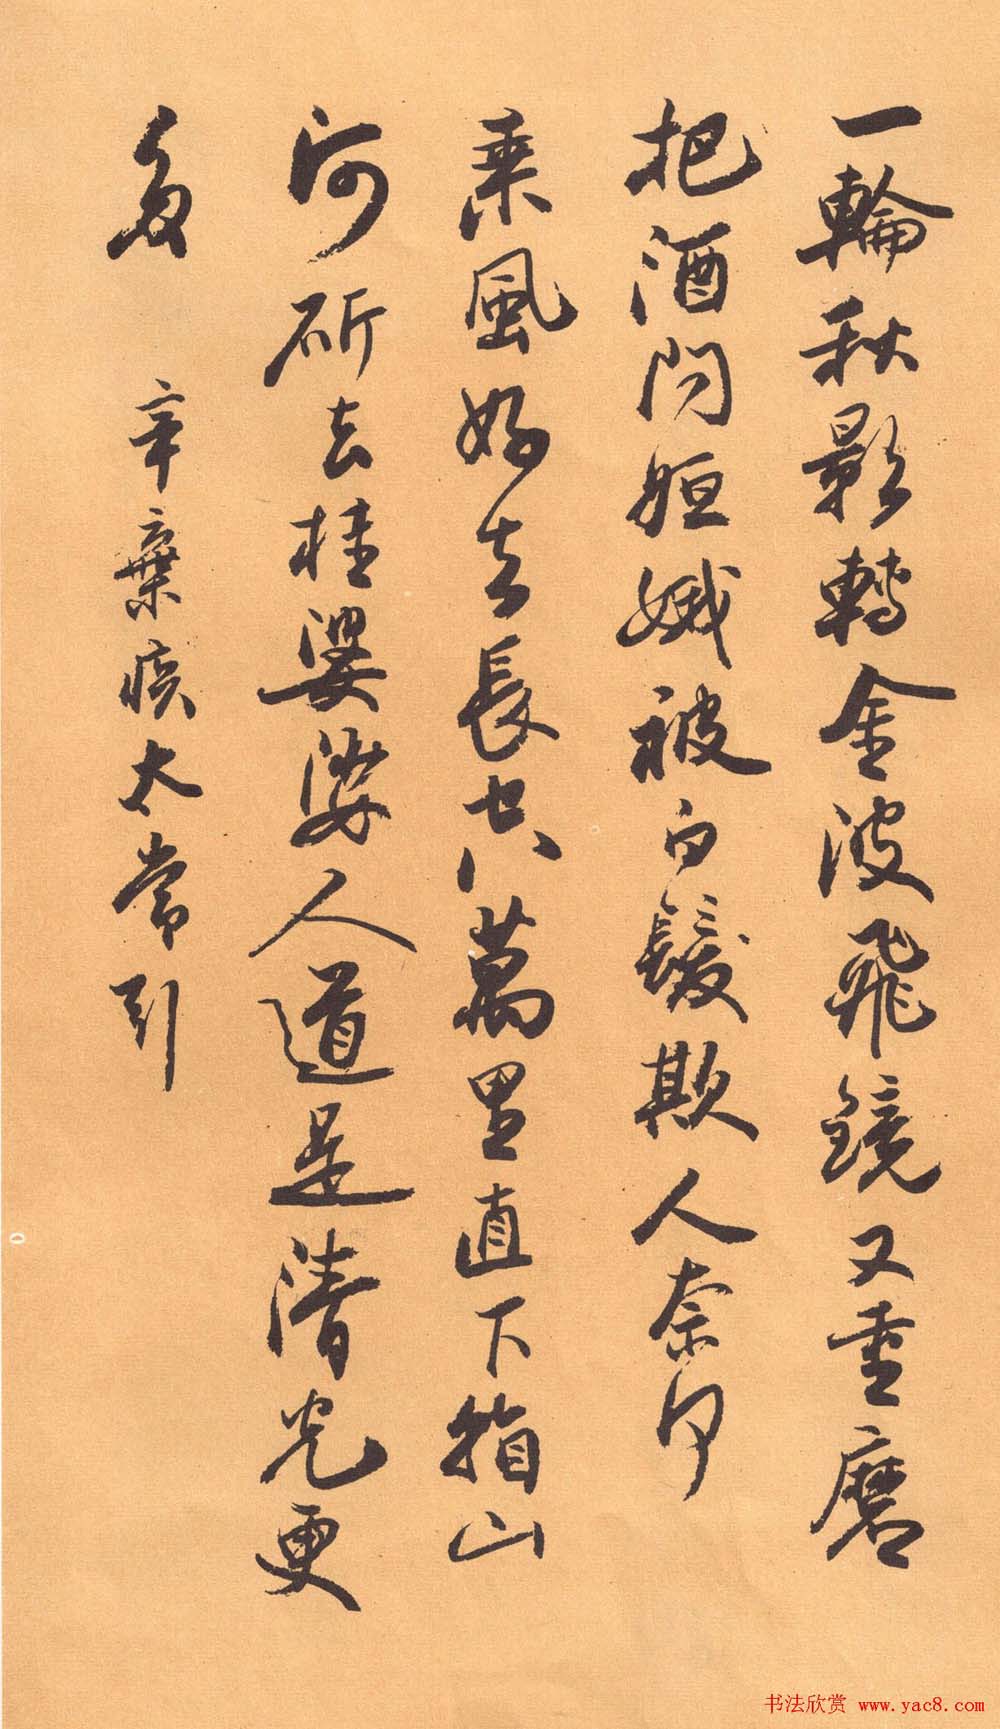 一輪秋影轉金波飛鏡又重磨
把酒問姮娥被白髮欺人奈何
乘風好去長空萬里直下看山
河斫去桂婆娑人道是清光更
多 辛棄疾太常引
书法欣赏 www.yac8.com